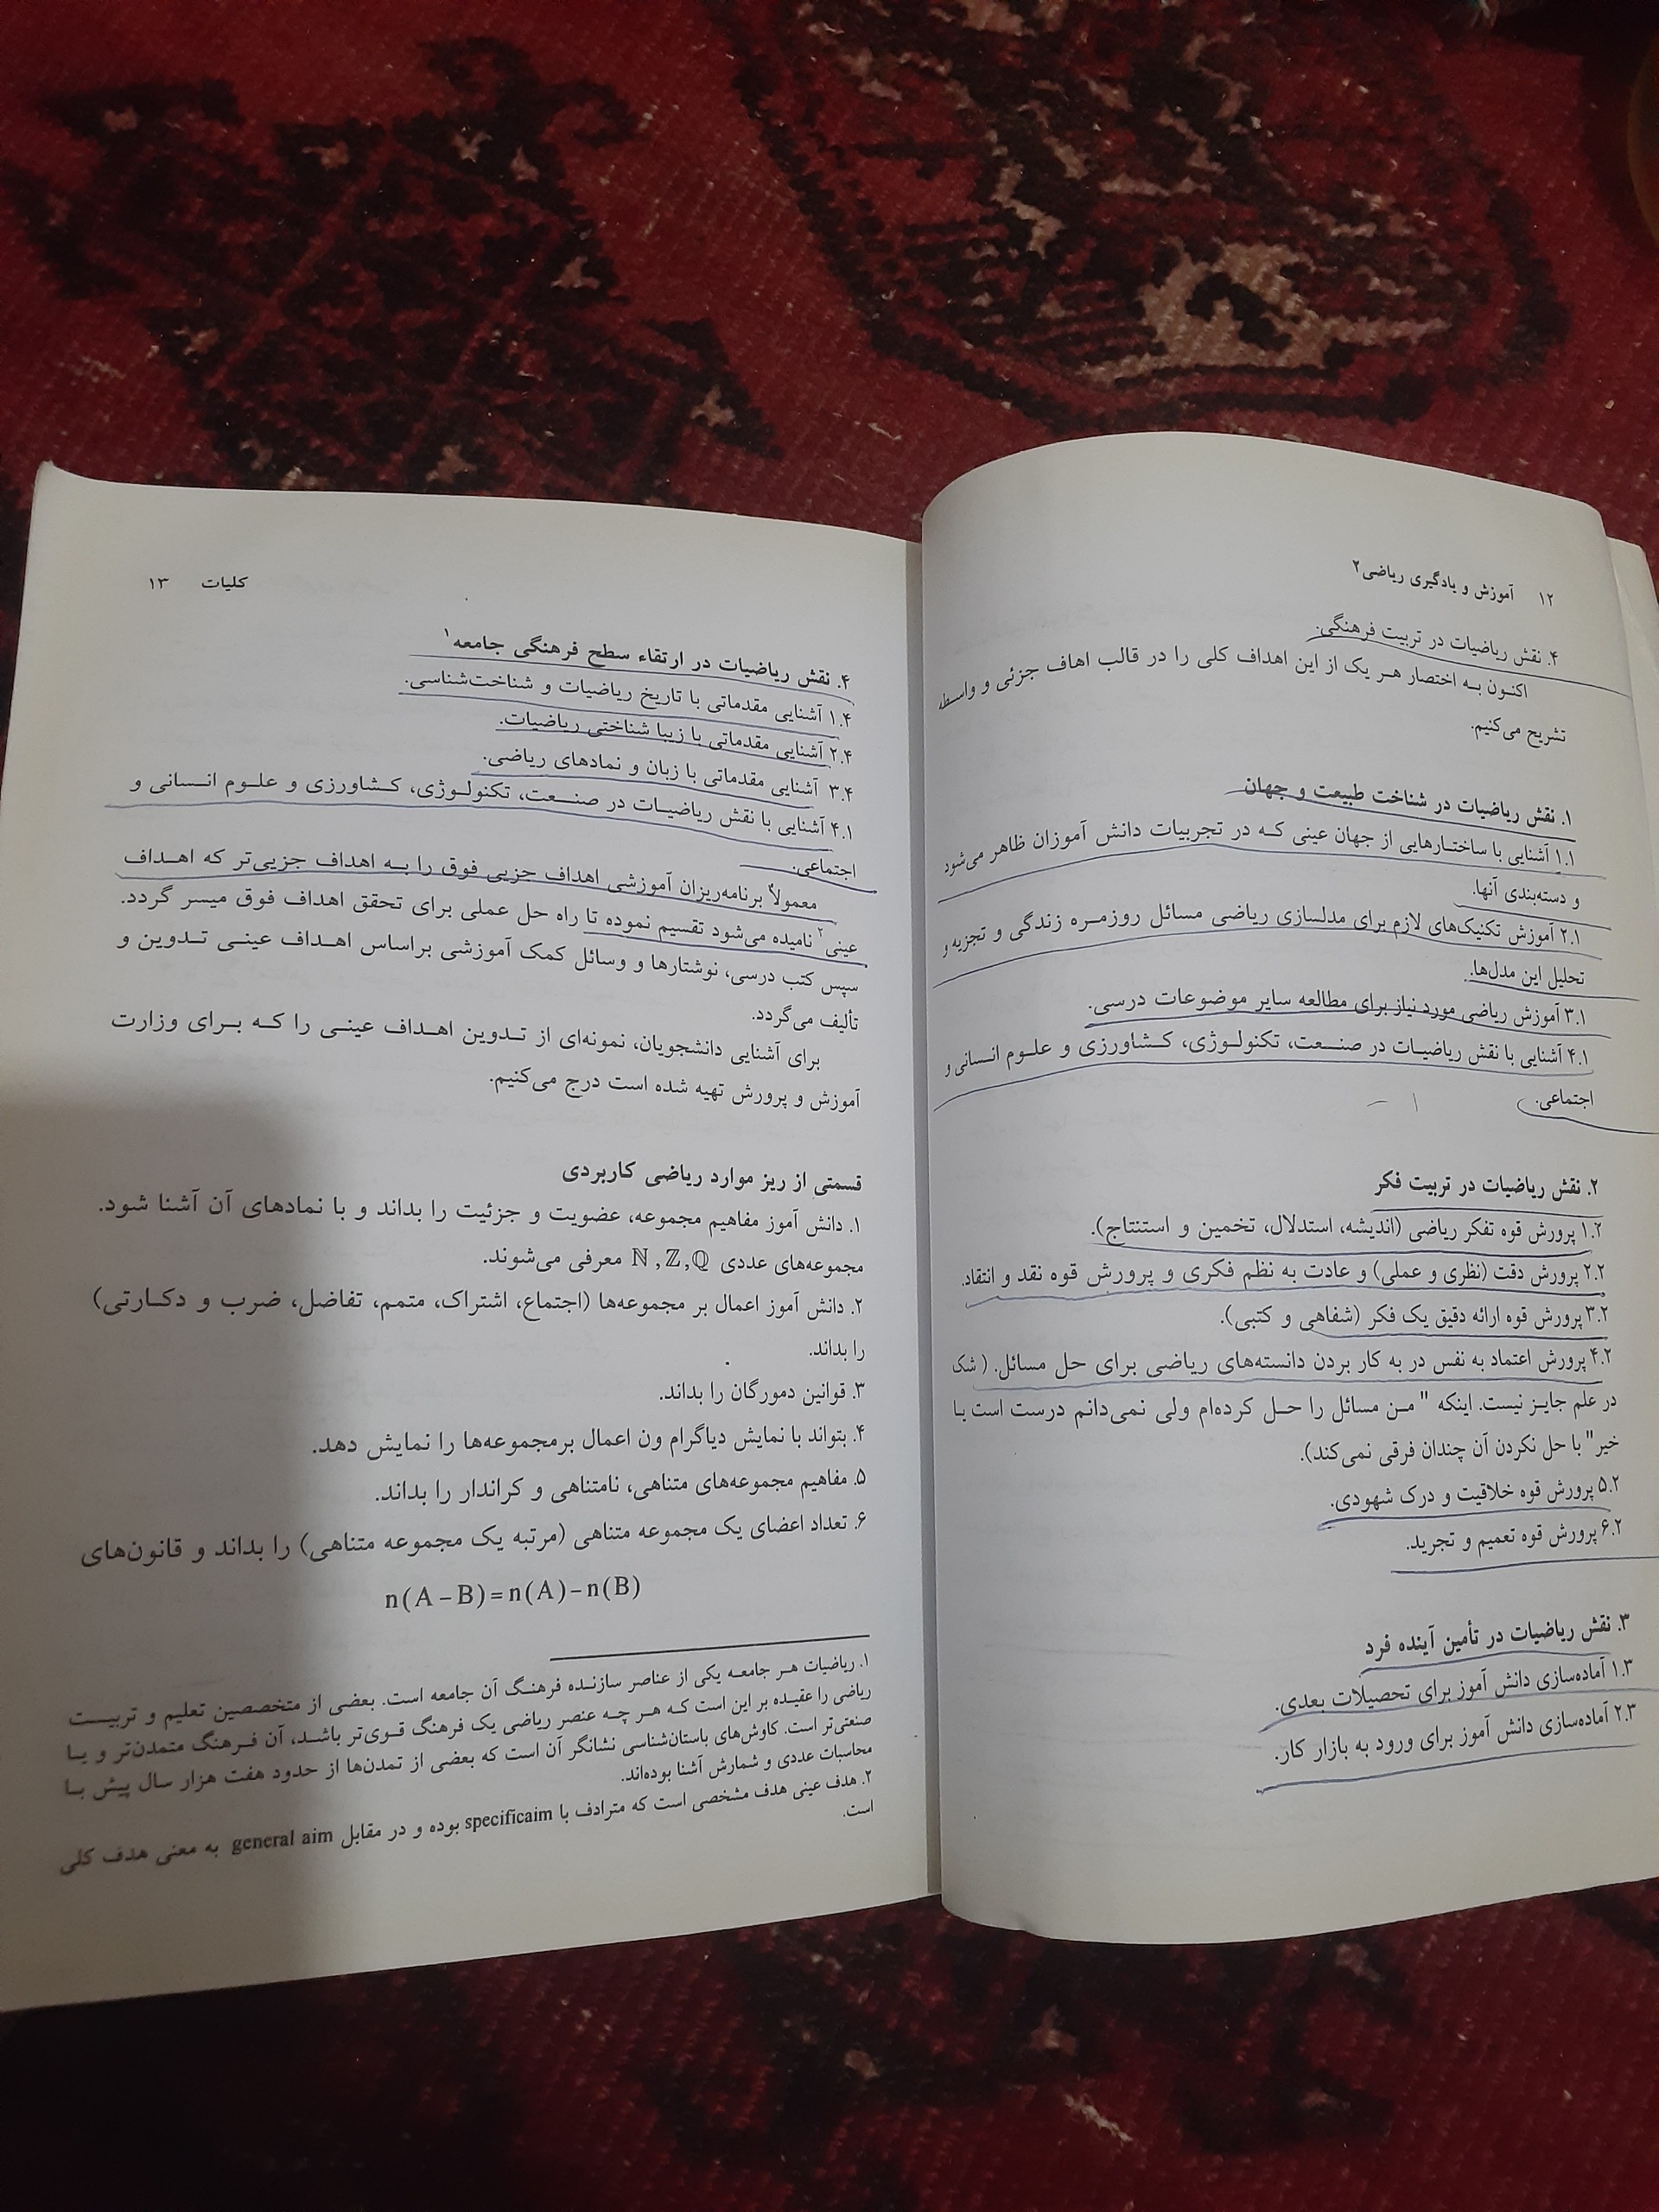 ۱۲ آموزش و یادگیری ریاضی۲
۴. نقش ریاضیات در تربیت فرهنگی.
اکنون به اختصار هر یک از این اهداف کلی را در قالب اهاف جزئی و واسطه
تشریح می‌کنیم.
۱. نقش ریاضیات در شناخت طبیعت و جهان
۱.۱ آشنایی با ساختارهایی از جهان عینی که در تجربیات دانش آموزان ظاهر می‌شود
و دسته‌بندی آنها.
۲.۱ آموزش تکنیک‌های لازم برای مدلسازی ریاضی مسائل روزمره زندگی و تجزیه و
تحلیل این مدل‌ها.
۳.۱ آموزش ریاضی مورد نیاز برای مطالعه سایر موضوعات درسی.
۴.۱ آشنایی با نقش ریاضیات در صنعت، تکنولوژی، کشاورزی و علوم انسانی و
اجتماعی.
۲. نقش ریاضیات در تربیت فکر
۱.۲ پرورش قوه تفکر ریاضی (اندیشه، استدلال، تخمین و استنتاج).
۲.۲ پرورش دقت (نظری و عملی) و عادت به نظم فکری و پرورش قوه نقد و انتقاد.
۳.۲ پرورش قوه ارائه دقیق یک فکر (شفاهی و کتبی).
۴.۲ پرورش اعتماد به نفس در به کار بردن دانسته‌های ریاضی برای حل مسائل. (شک
در علم جایز نیست. اینکه " من مسائل را حل کرده‌ام ولی نمی‌دانم درست است با
خیر" با حل نکردن آن چندان فرقی نمی‌کند).
۵.۲ پرورش قوه خلاقیت و درک شهودی.
۶.۲ پرورش قوه تعمیم و تجرید.
۳. نقش ریاضیات در تأمین آینده فرد
۱.۳ آماده‌سازی دانش آموز برای تحصیلات بعدی.
۲.۳ آماده‌سازی دانش آموز برای ورود به بازار کار.
کلیات ۱۳
۴. نقش ریاضیات در ارتقاء سطح فرهنگی جامعه۱
۱.۴ آشنایی مقدماتی با تاریخ ریاضیات و شناخت‌شناسی.
۲.۴ آشنایی مقدماتی با زیبا شناختی ریاضیات.
۳.۴ آشنایی مقدماتی با زبان و نمادهای ریاضی.
۴.۱ آشنایی با نقش ریاضیات در صنعت، تکنولوژی، کشاورزی و علوم انسانی و
اجتماعی.
معمولاً برنامه‌ریزان آموزشی اهداف جزیی فوق را به اهداف جزیی‌تر که اهداف
عینی۲ نامیده می‌شود تقسیم نموده تا راه حل عملی برای تحقق اهداف فوق میسر گردد.
سپس کتب درسی، نوشتارها و وسائل کمک آموزشی براساس اهداف عینی تدوین و
تألیف می‌گردد.
برای آشنایی دانشجویان، نمونه‌ای از تدوین اهداف عینی را که برای وزارت
آموزش و پرورش تهیه شده است درج می‌کنیم.
قسمتی از ریز موارد ریاضی کاربردی
۱. دانش آموز مفاهیم مجموعه، عضویت و جزئیت را بداند و با نمادهای آن آشنا شود.
مجموعه‌های عددی ℕ,ℤ,ℚ معرفی می‌شوند.
۲. دانش آموز اعمال بر مجموعه‌ها (اجتماع، اشتراک، متمم، تفاضل، ضرب و دکارتی)
را بداند.
۳. قوانین دمورگان را بداند.
۴. بتواند با نمایش دیاگرام ون اعمال برمجموعه‌ها را نمایش دهد.
۵. مفاهیم مجموعه‌های متناهی، نامتناهی و کراندار را بداند.
۶. تعداد اعضای یک مجموعه متناهی (مرتبه یک مجموعه متناهی) را بداند و قانون‌های
n(A−B)=n(A)−n(B)
۱. ریاضیات هر جامعه یکی از عناصر سازنده فرهنگ آن جامعه است. بعضی از متخصصین تعلیم و تربیت
ریاضی را عقیده بر این است که هر چه عنصر ریاضی یک فرهنگ قوی‌تر باشد، آن فرهنگ متمدن‌تر و یا
صنعتی‌تر است. کاوش‌های باستان‌شناسی نشانگر آن است که بعضی از تمدن‌ها از حدود هفت هزار سال پیش با
محاسبات عددی و شمارش آشنا بوده‌اند.
۲. هدف عینی هدف مشخصی است که مترادف با specificaim بوده و در مقابل general aim به معنی هدف کلی
است.